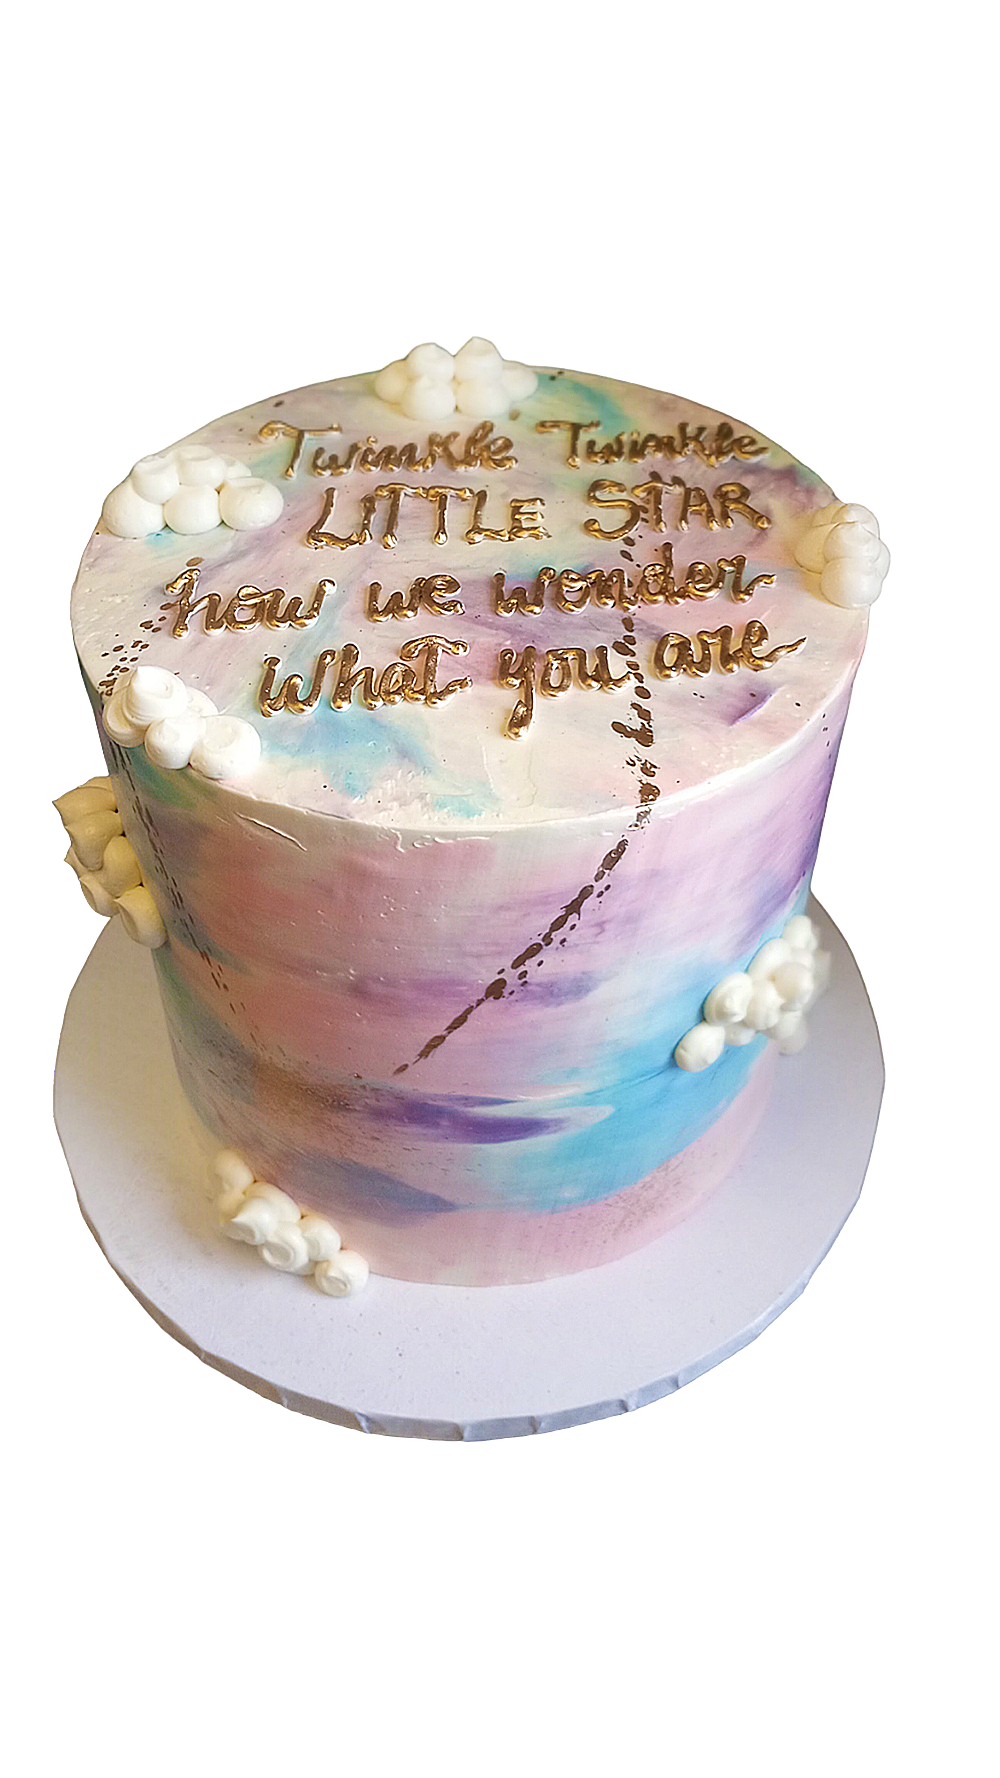 Twinkle Twinkle
LITTLE STAR
how we wonder
what you are